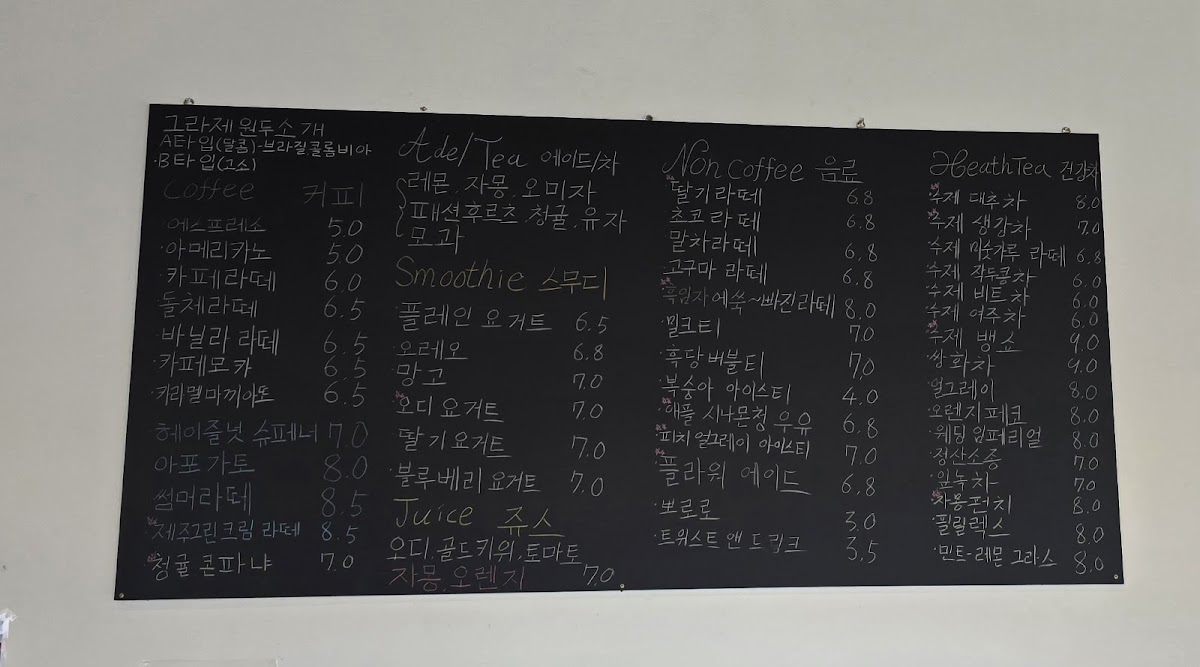 그라제 원두소개
A타입(달콤)-브라질콜롬비아
·B타입(고소)
Coffee 커피
·에스프레소 5.0
·아메리카노 5.0
·카페라떼 6.0
·돌체라떼 6.5
·바닐라 라떼 6.5
·카페모카 6.5
·카라멜마끼아또 6.5
헤이즐넛 슈페너 7.0
아포가토 8.0
썸머라떼 8.5
제주그린크림 라떼 8.5
청귤 콘파냐 7.0
Ade/Tea 에이드/차
레몬.자몽.오미자
패션후르츠.청귤.유자
모과
Smoothie 스무디
·플레인 요거트 6.5
·오레오 6.8
·망고 7.0
·오디 요거트 7.0
·딸기요거트 7.0
·블루베리 요거트 7.0
Juice 쥬스
오디.골드키위.토마토
자몽.오렌지 7.0
Non coffee 음료
딸기라떼 6.8
쵸코라떼 6.8
말차라떼 6.8
고구마 라떼 6.8
흑임자에쑥~빠진라떼 8.0
·밀크티 7.0
·흑당버블티 7.0
·복숭아 아이스티 4.0
·애플 시나몬청 우유 6.8
·피치얼그레이 아이스티 7.0
·플라워 에이드 6.8
·뽀로로 3.0
·트위스트 앤 드링크 3.5
HeathTea 건강차
수제 대추차 8.0
수제 생강차 7.0
수제 미숫가루 라떼 6.8
수제 작두콩차 6.0
수제 비트차 6.0
수제 여주차 6.0
수제 뱅쇼 9.0
·쌍화차 9.0
·얼그레이 8.0
·오렌지페코 8.0
·웨딩임페리얼 8.0
·정산소종 7.0
7.0
자몽펀치 8.0
·필릴렉스 8.0
·민트-레몬 그라스 8.0